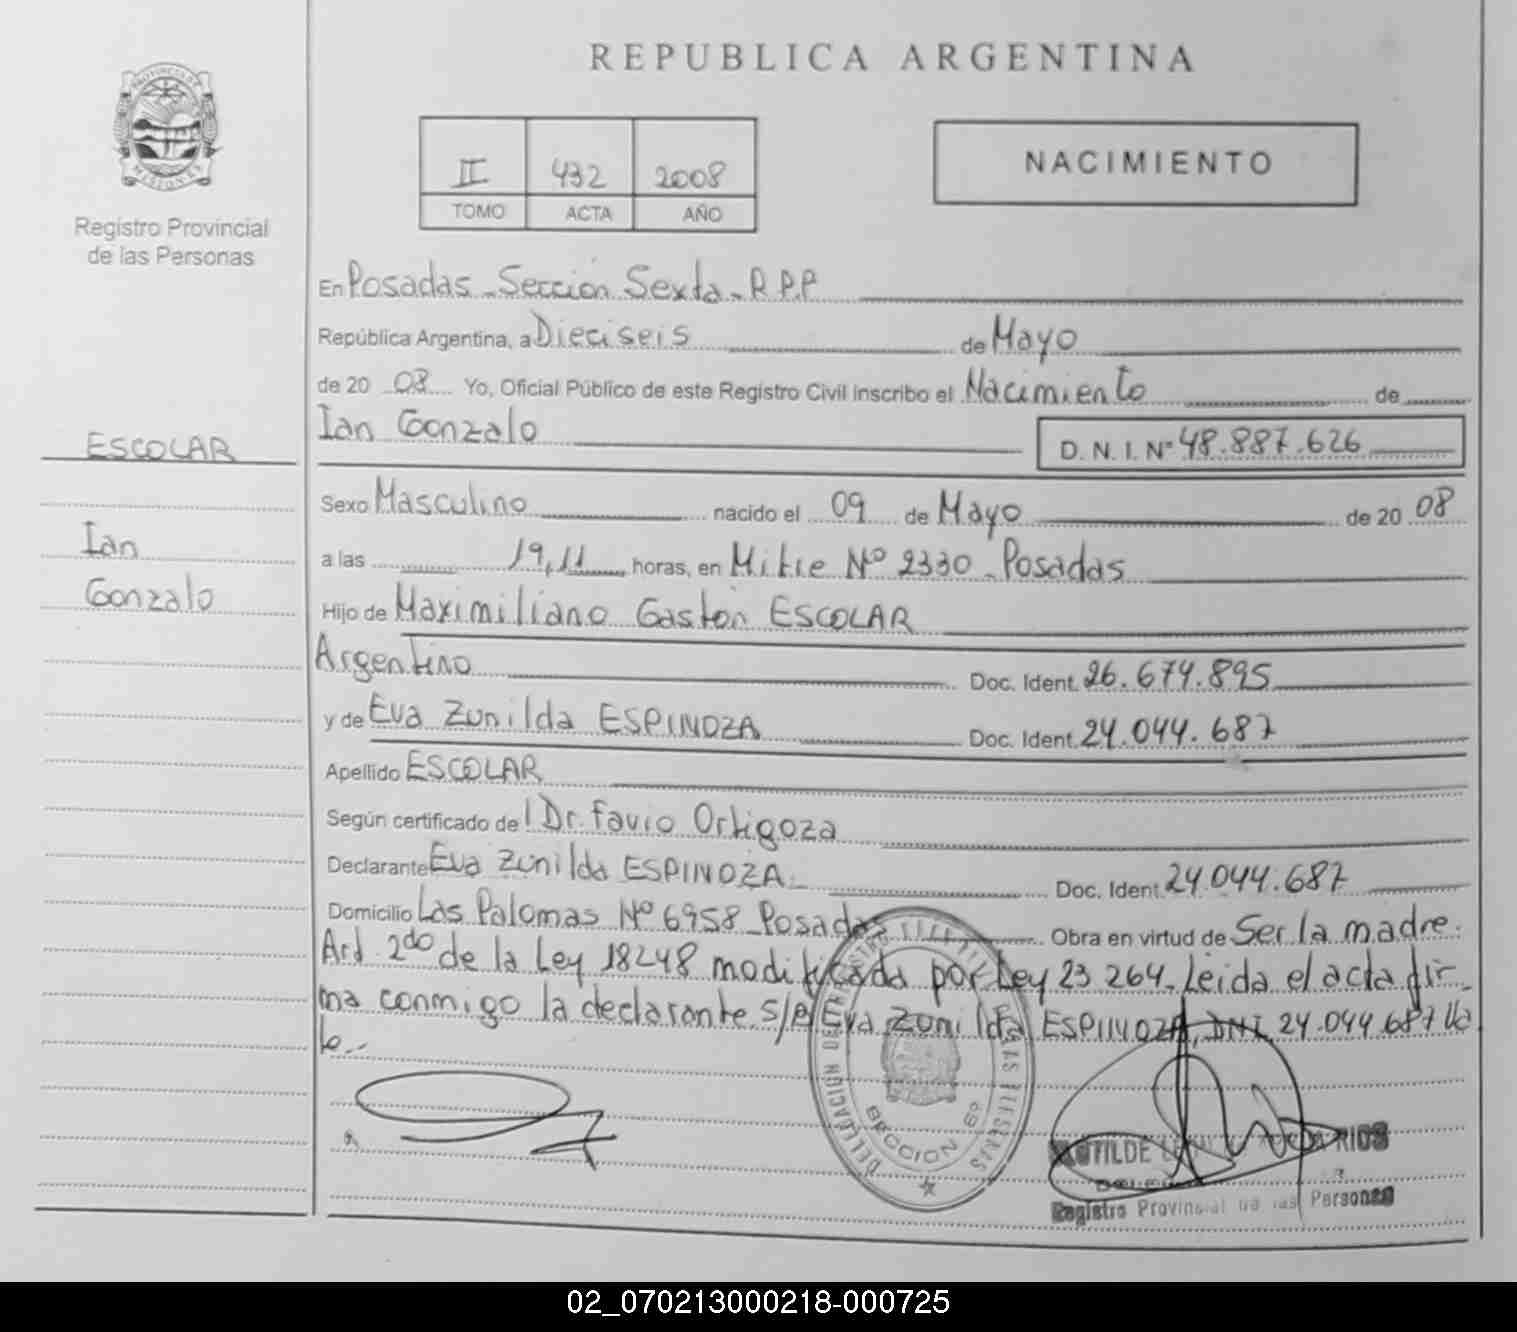 REPUBLICA ARGENTINA
PROVINCIA DE
MISIONES
Registro Provincial
de las Personas
II 432 2008
TOMO ACTA AÑO
NACIMIENTO
ESCOLAR
Ian
Gonzalo
En Posadas - Sección Sexta - R.P.P
República Argentina, a Dieciseis de Mayo
de 20 08 Yo, Oficial Público de este Registro Civil inscribo el Nacimiento de
Ian Gonzalo D. N. I. Nº 48.887.626
Sexo Masculino nacido el 09 de Mayo de 20 08
a las 19,11 horas, en Mitre Nº 2330 - Posadas
Hijo de Maximiliano Gastón ESCOLAR
Argentino Doc. Ident. 26.674.895
y de Eva Zunilda ESPINOZA Doc. Ident. 24.044.687
Apellido ESCOLAR
Según certificado de l Dr. Favio Ortigoza
Declarante Eva Zunilda ESPINOZA Doc. Ident. 24.044.687
Domicilio Las Palomas Nº 6958 - Posadas Obra en virtud de Ser la madre.
Art. 2do de la Ley 18248 modificada por Ley 23.264. Leida el acta fir-
ma conmigo la declarante s/e Eva Zunilda ESPINOZA, DNI 24.044.687 Va
le.-
DELEGACION
SECCION 6º
RIOS
Registro Provincial de las Personas
02_070213000218-000725